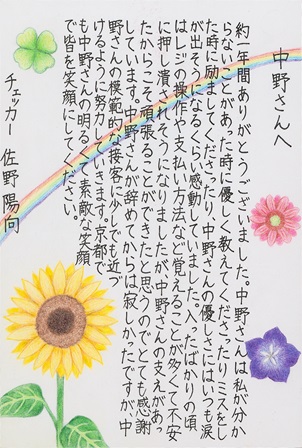 中野さんへ
約一年間ありがとうございました。中野さんは私が分か
らないことがあった時に優しく教えてくださったりミスをし
た時に励ましてくださったり、中野さんの優しさにはいつも涙
が出そうになるくらい感動していました。入ったばかりの頃
はレジの操作や支払い方法など覚えることが多くて不安
に押し潰されそうになりましたが中野さんの支えがあっ
たからこそ頑張ることができたと思うのでとても感謝
しています。中野さんが辞めてからは寂しかったですが中
野さんの模範的な接客に少しでも近づ
けるように努力していきます。京都で
も中野さんの明るくて素敵な笑顔
で皆を笑顔にしてください。
チェッカー 佐野陽向